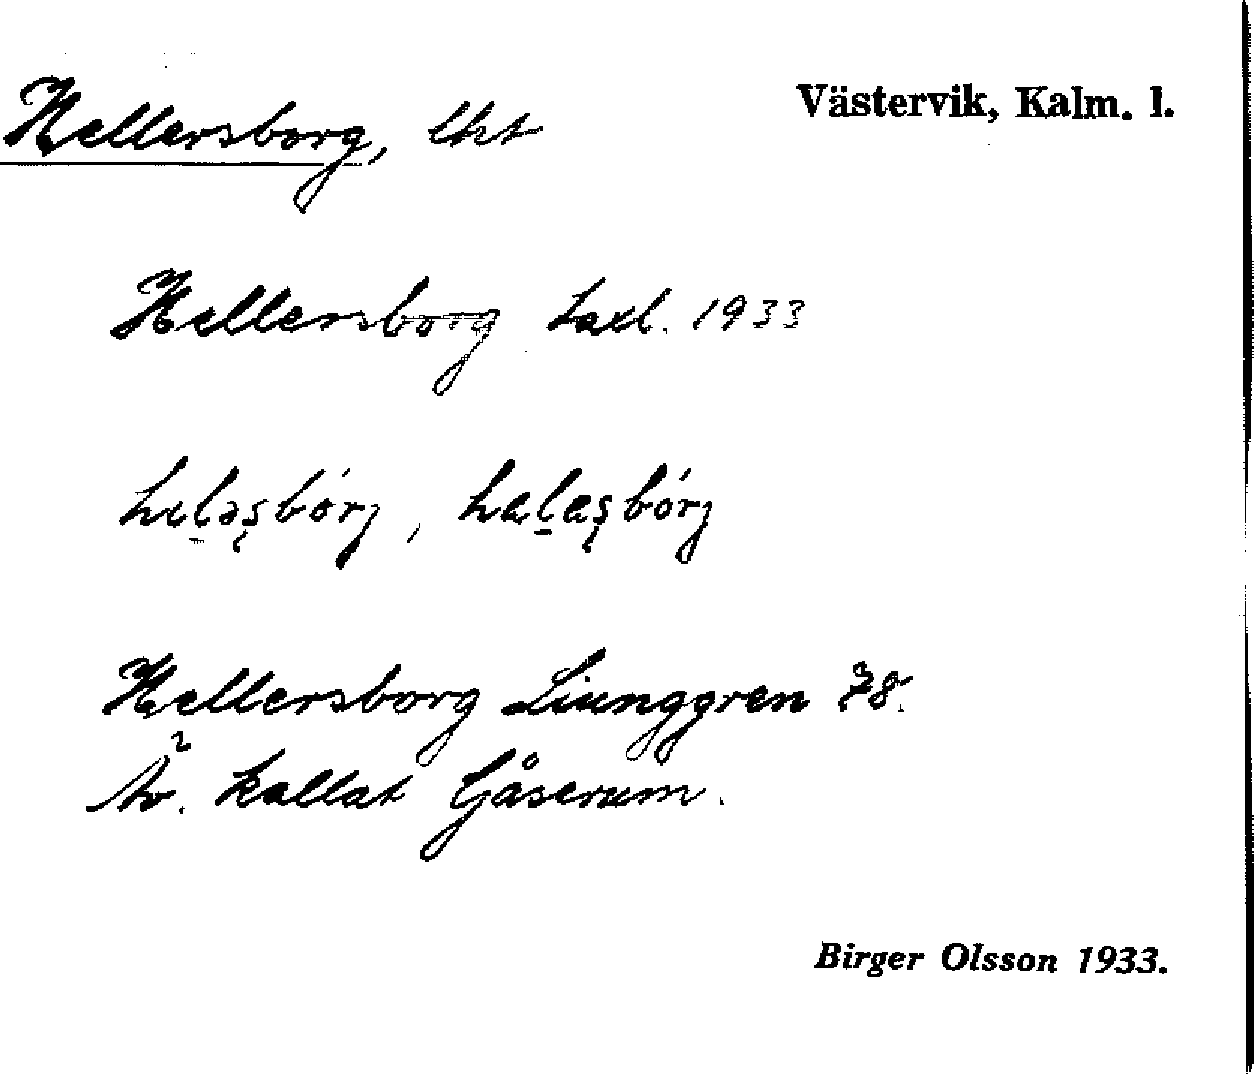 Hellersborg, lht
Västervik, Kalm. l.
Hellersborg taxl. 1933
Hellersborg Liunggren 78.
kallat Gåserum.
Birger Olsson 1933.